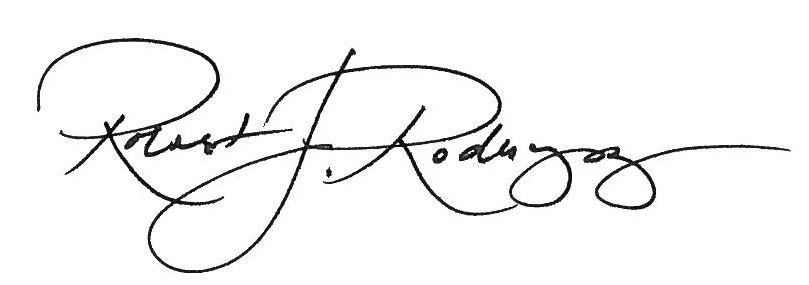 Robert J. Rodriguez